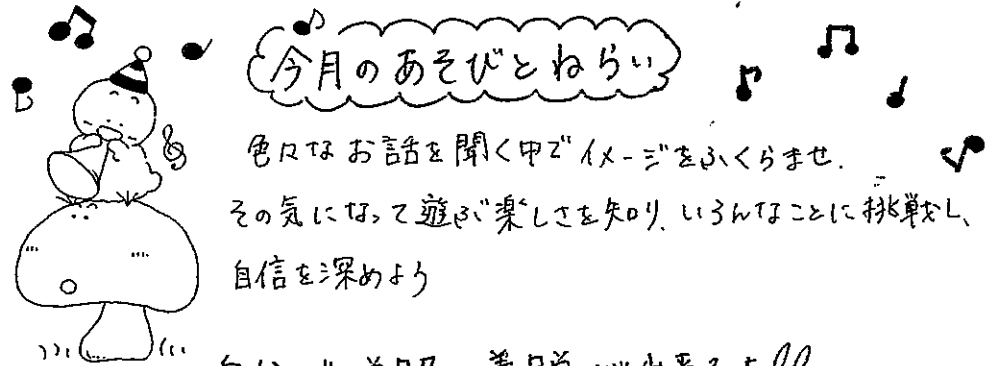 今月のあそびとねらい
色々なお話を聞く中でイメージをふくらませ、
その気になって遊ぶ楽しさを知り、いろんなことに挑戦し、
自信を深めよう